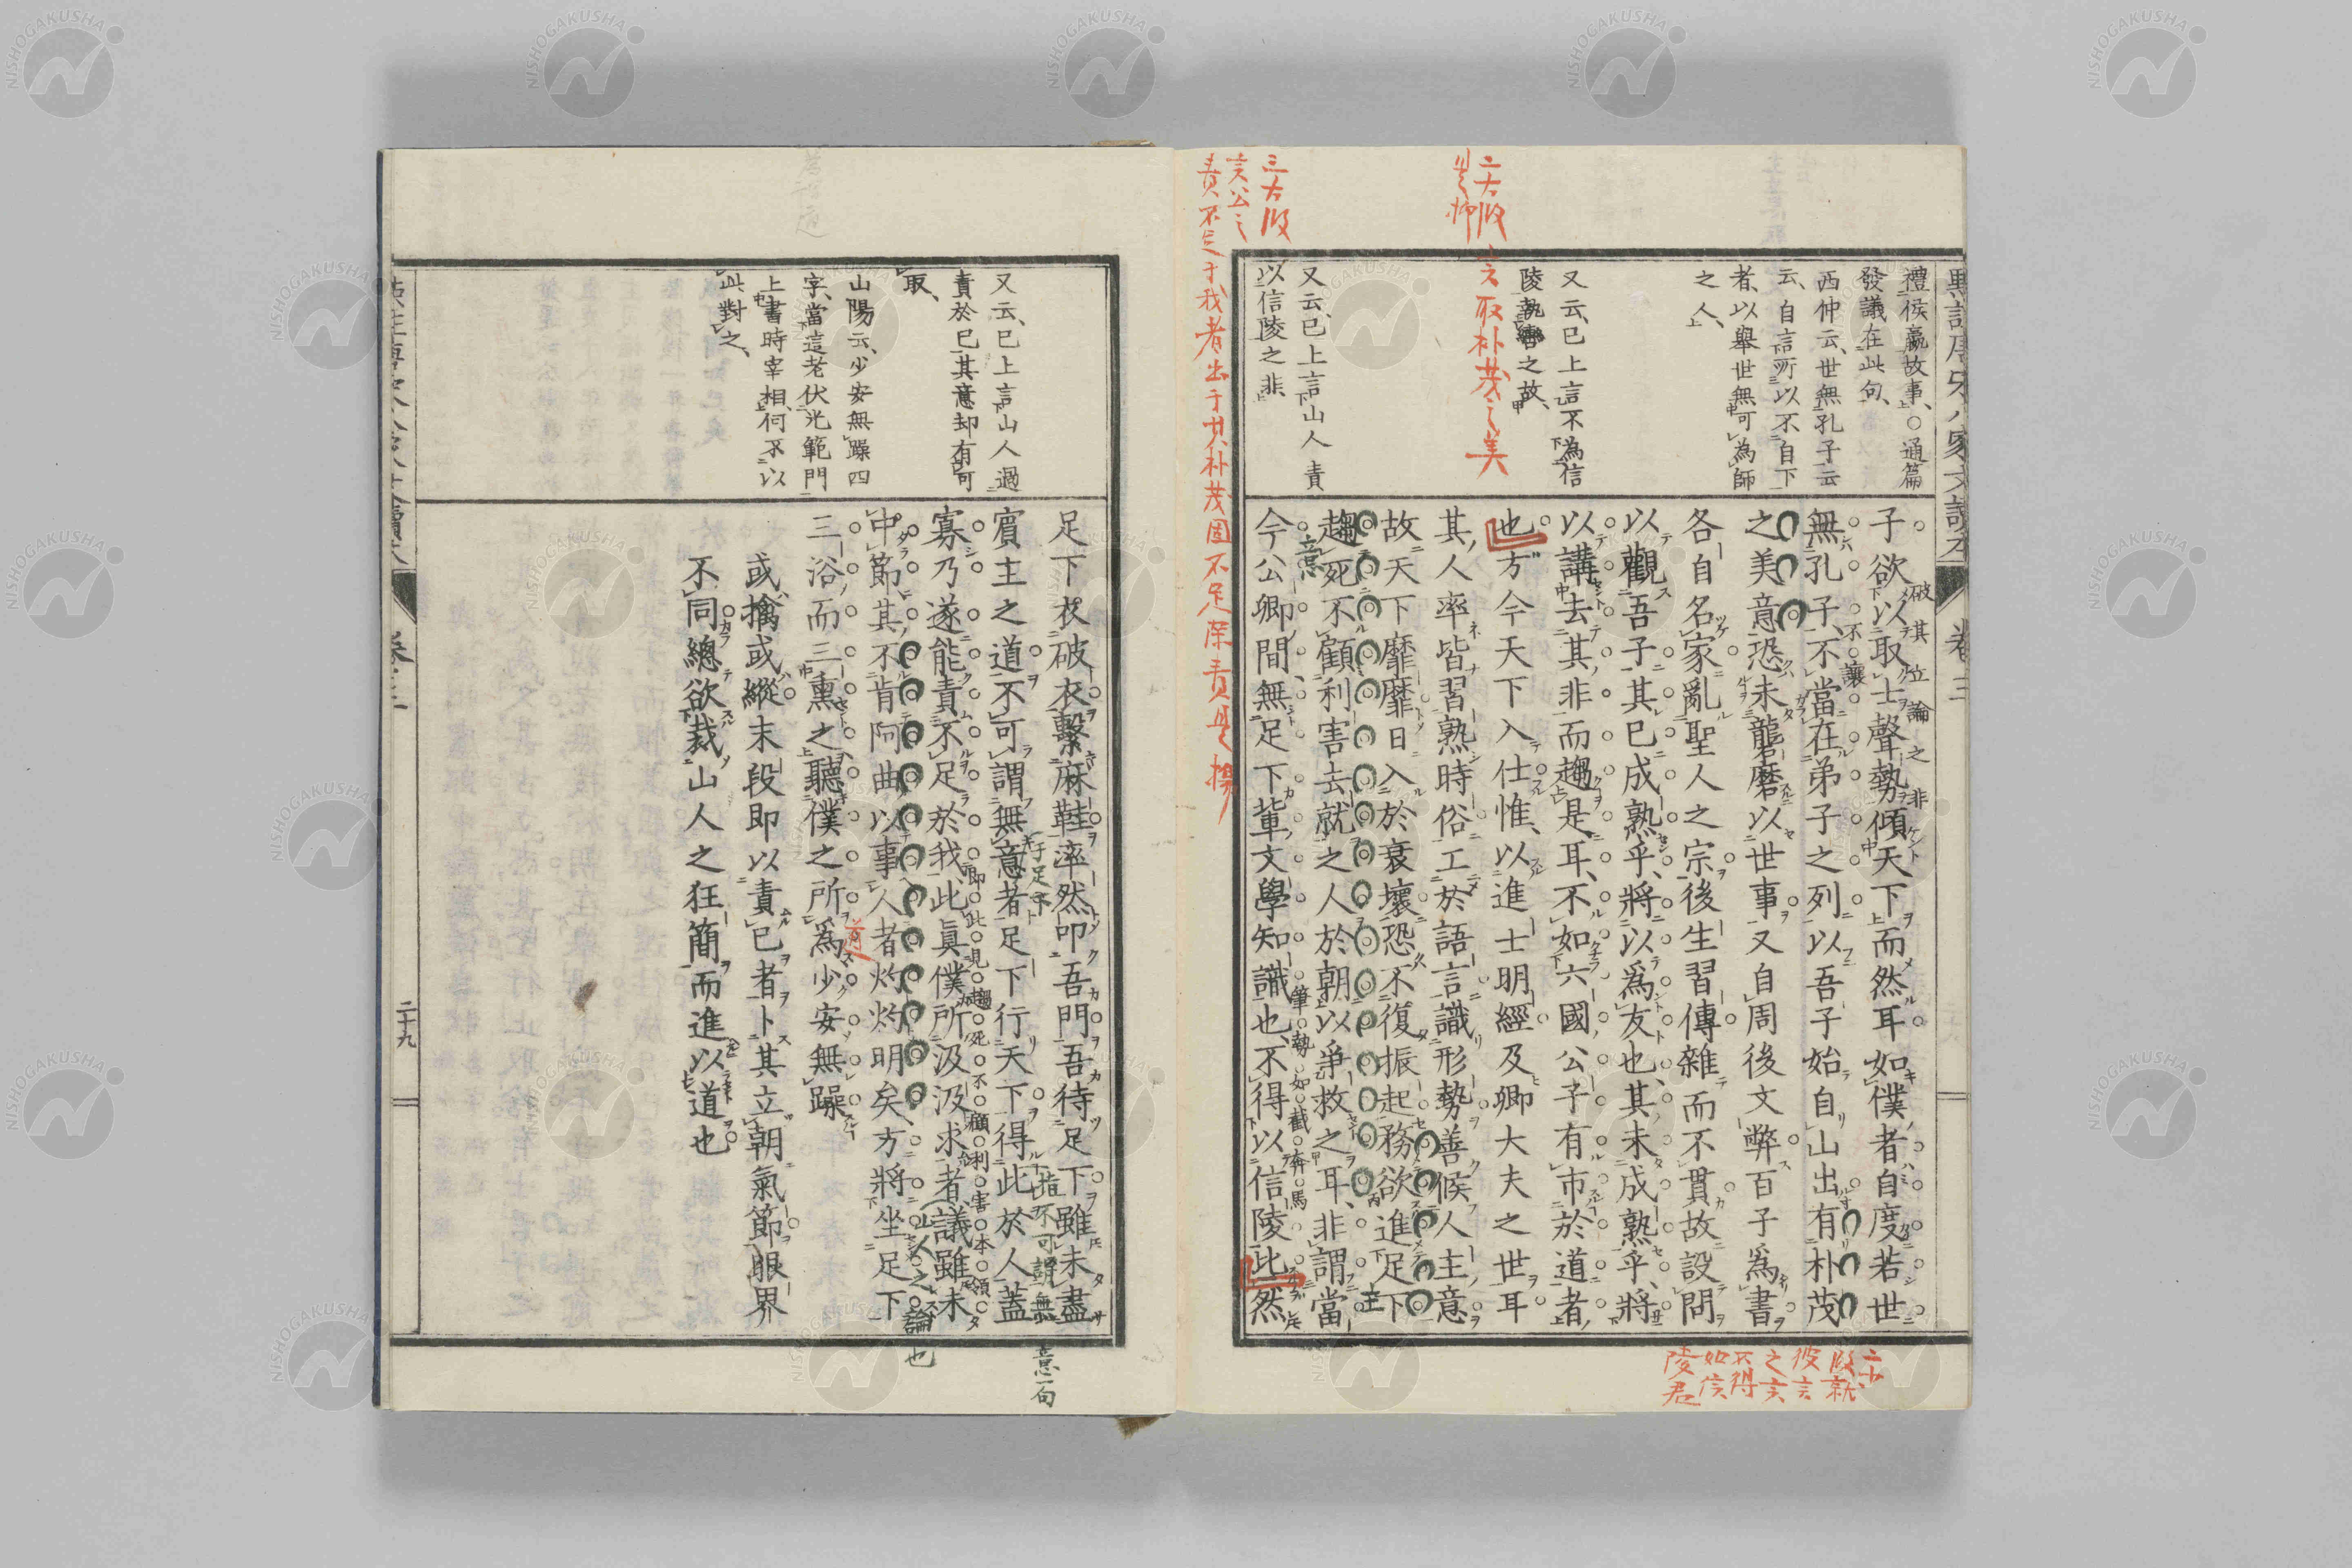 三大段
言公之
責不足于我者出于其朴茂固不足深責是揚
二大段
言取朴茂之美
禮侯嬴故事、○通篇
發議在此句、
西仲云、世無孔子云
云、自言所以不自下
者、以舉世無可為師
之人、
又云、已上言不為信
陵執轡之故、
又云、已上言山人責
以信陵之非、
子欲以取士聲勢傾天下而然耳如僕者自度若世
破其立論之非
無孔子、不當在弟子之列以吾子始自山出有朴茂
不讓
之美意恐未礱磨以世事又自周後文弊百子爲書
各自名家亂聖人之宗後生習傳雜而不貫故設問
以觀吾子其已成熟乎、將以爲友也、其未成熟乎、將
以講去其非而趨是耳、不如六國公子有市於道者、
也方今天下入仕惟以進士明經及卿大夫之世耳
其人率皆習熟時俗工於語言識形勢善候人主意
故天下靡靡日入於衰壞恐不復振起務欲進足下
趨死不顧利害去就之人於朝以爭救之耳、非謂當
立意
主
今公卿間、無足下輩文學知識也、不得以信陵比然
筆勢如截奔馬
二大
段就
彼言
之言
不得
如信
陵君
卷三
足下衣破衣繫麻鞋率然叩吾門吾待足下雖未盡
賓主之道不可謂無意者足下行天下得此於人蓋
于足下
指不可謂無意一句
寡乃遂能責不足於我、此真僕所汲汲求者、議雖未
即此見趨死不顧利害本領
中節其不肯阿曲以事人者灼灼明矣、方將坐足下
山人之論也
三浴而三熏之聽僕之所爲少安無躁
道
或擒或縱末段即以責已者卜其立朝氣節眼界
不同總欲裁山人之狂簡而進以道也
又云、已上言山人過
責於已、其意却有可
取、
山陽云、少安無躁四
字、當這老伏光範門
上書時宰相、何不以
此對之、
二十九